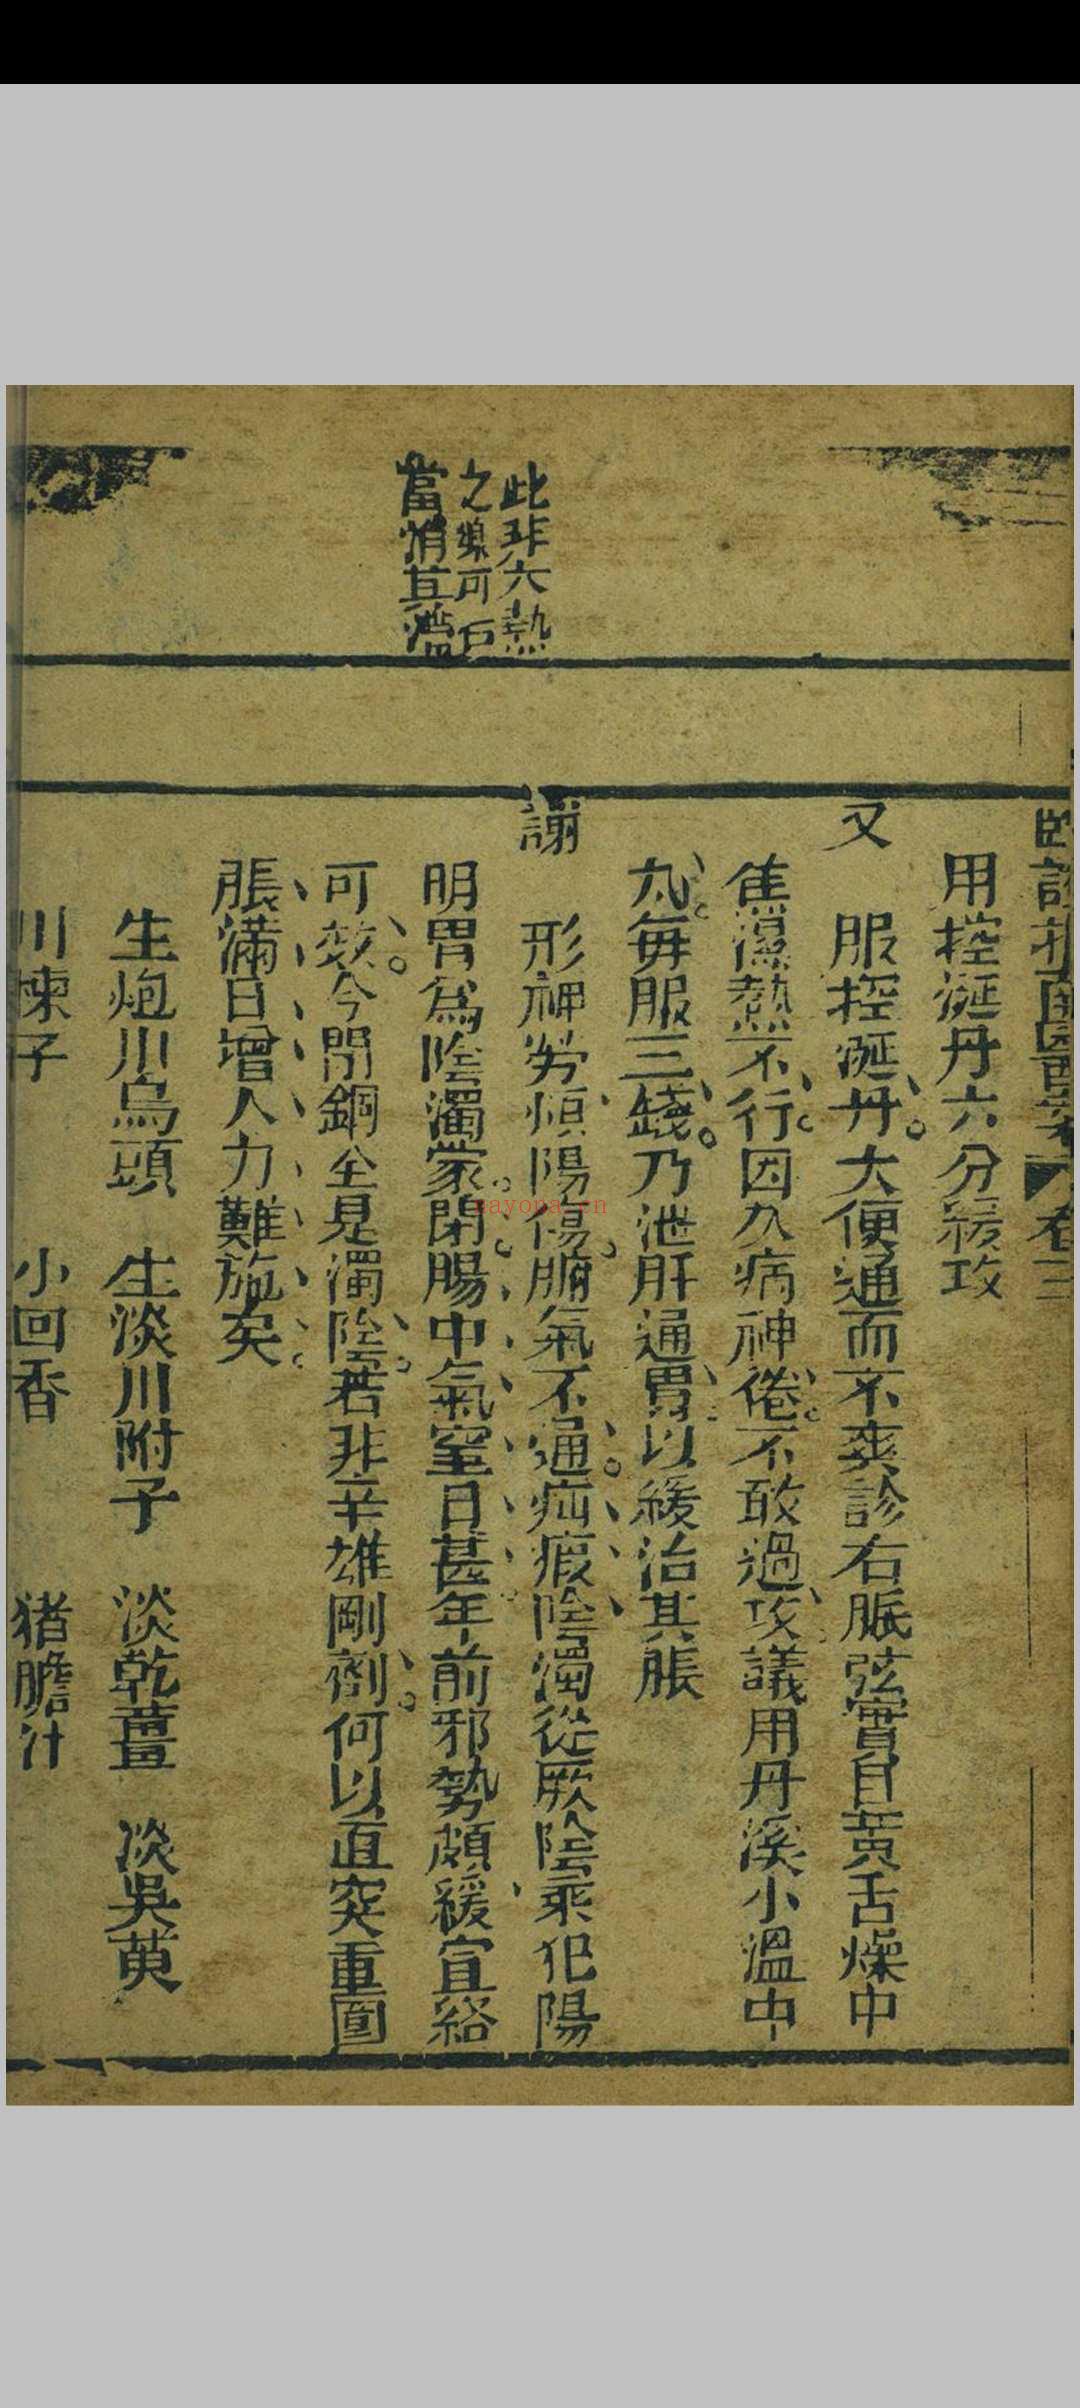 用控涎丹六分緩攻
又
服控涎丹大便通而不爽診右脈弦實目黃舌燥中
焦濕熱不行因久病神倦不敢過攻議用丹溪小溫中
丸每服三錢乃泄肝通胃以緩治其脹
謝
形神勞煩陽傷腑氣不通疝瘕陰濁從厥陰乘犯陽
明胃為陰濁蒙閉腸中氣窒日甚年前邪勢頗緩宣絡
可效今閉錮全見濁陰若非辛雄剛劑何以直突重圍
脹滿日增人力難施矣
生炮川烏頭 生淡川附子 淡乾薑 淡吳萸
川楝子 小回香 猪膽汁
此非六熱
之 可
當 其濫
sayona.cn